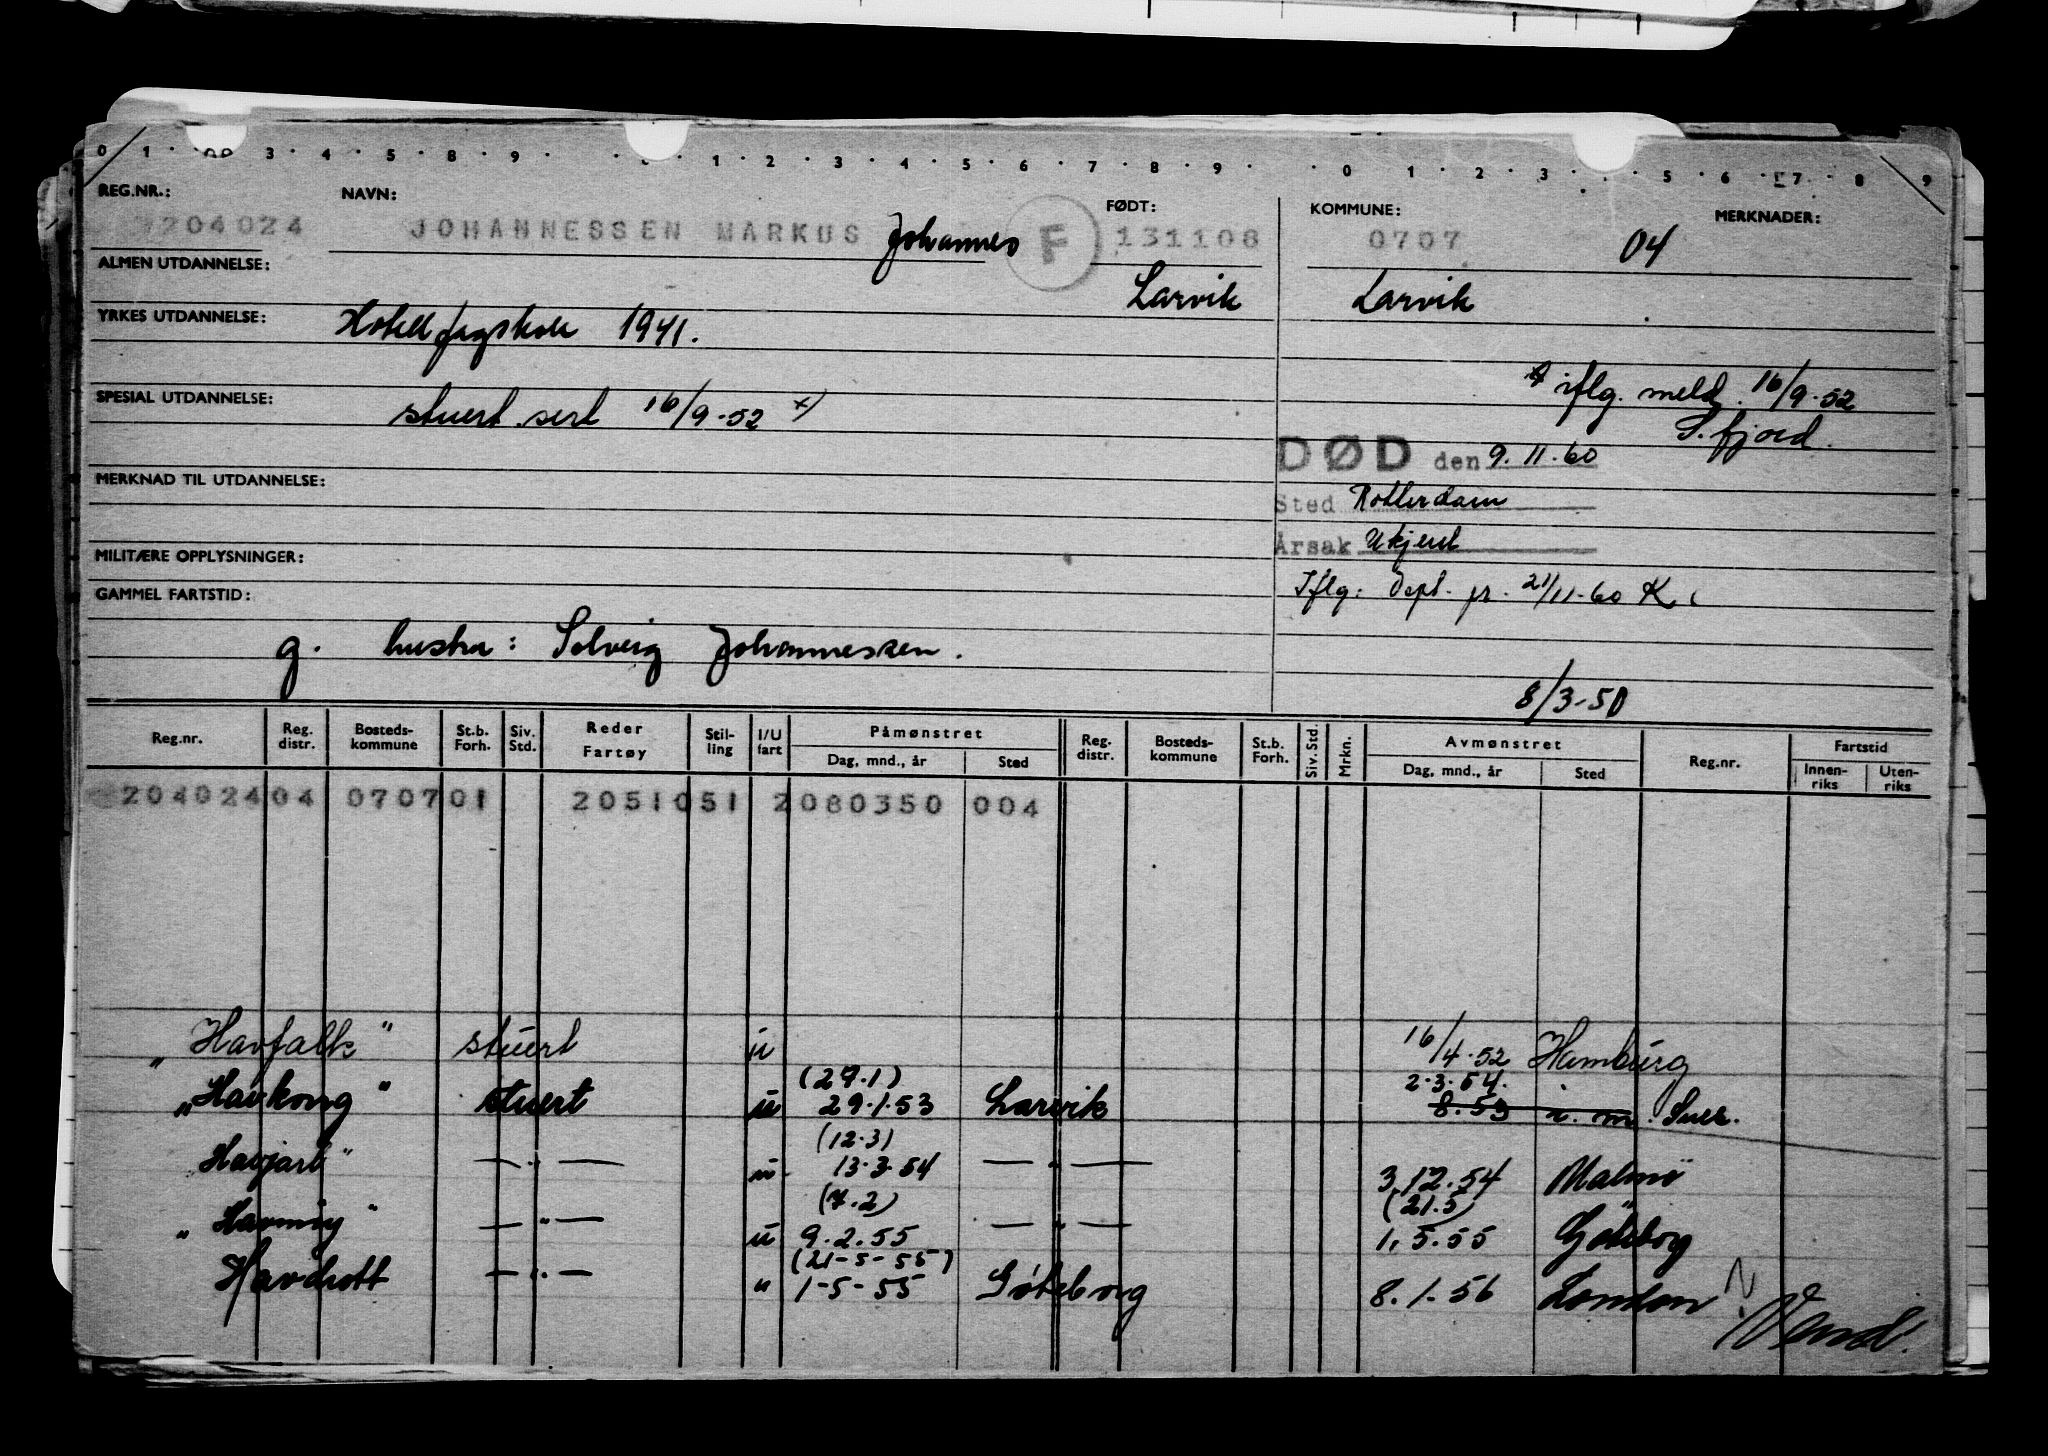 0 1 · 3 · 4 · 5 · 8 · 9 · · 1 · 2 · 3 · 4 · 5 · 6 · 7 · 8 · 9 · · 0 · 1 · 2 · 3 · 5 · 6 · 7 · 8 · 9
REG.NR.: NAVN: FØDT: KOMMUNE: MERKNADER:
204024 JOHANNESSEN MARKUS Johannes F 131108 0707 04
ALMEN UTDANNELSE: Larvik Larvik
YRKES UTDANNELSE: Hotellfagskole 1941.
iflg. meld. 16/9-52
SPESIAL UTDANNELSE: stuert sert 16/9-52 x)
S.fjord.
DØD den 9.11.60
MERKNAD TIL UTDANNELSE:
Sted Rotterdam
Årsak Ukjent
MILITÆRE OPPLYSNINGER:
GAMMEL FARTSTID: Iflg: Dept. pr. 21/11-60 K
g. hustru: Solveig Johannessen.
8/3-50
Reg.nr. Reg. distr. Bosteds-kommune St.b. Forh. Siv. Std. Reder Fartøy Stil-ling I/U fart Påmønstret Reg. distr. Bosteds-kommune St.b. Forh. Siv. Std. Mrkn. Avmønstret Reg.nr. Fartstid
Dag, mnd., år Sted Dag, mnd., år Sted Innen-riks Uten-riks
204024 04 0707 01 2051051 2080350 004
"Havfalk" stuert u 16/4-52 Hamburg
(27.1) 2.3.54.
"Havkong" stuert u 29.1.53 Larvik 8.53 i. m. Sues.
(12.3)
Havjarl" — " — u 13.3.54 — " — 3.12.54 Malmö
(7.2) (21.5)
"Havmøy" — " — u 9.2.55 — " — 1.5.55 Göteborg
(21-5-55)
Havdrott — " — " 1-5-55 Göteborg 8.1.56 London
Vend!